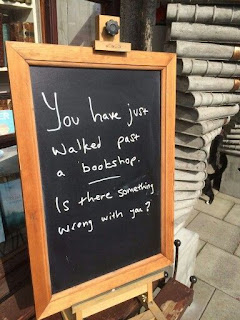 You have just
walked past
a bookshop.
Is there something
wrong with you?